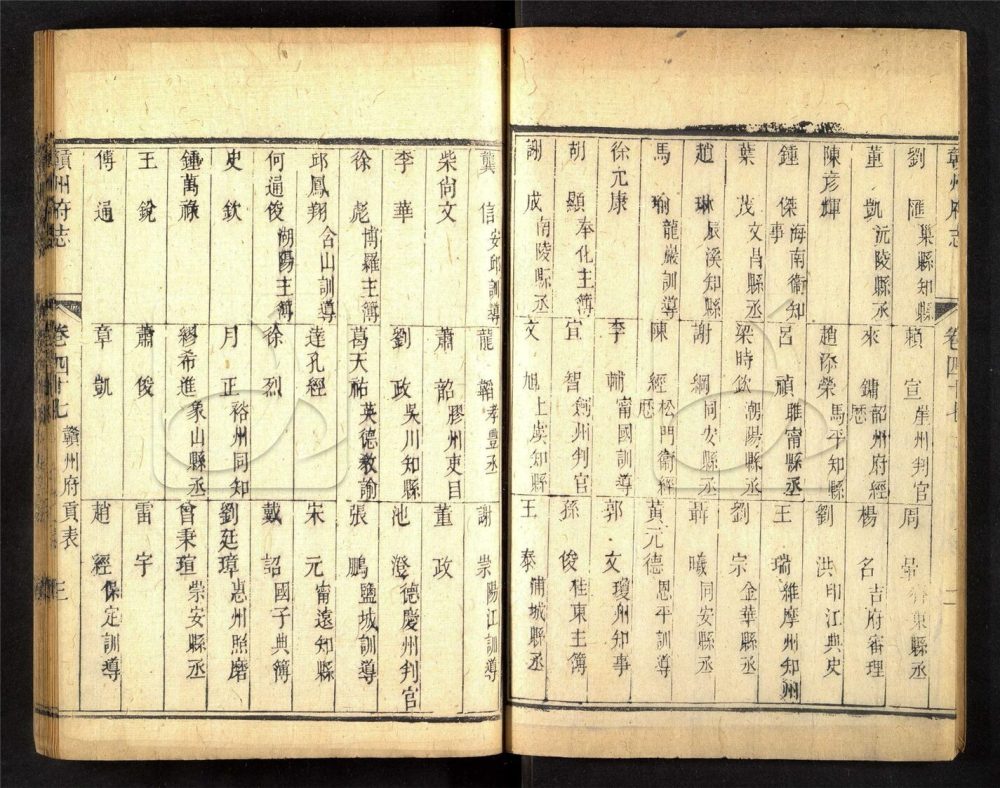 贛州府志
卷四十七
劉匯巢縣知縣
賴宣崖州判官
周東縣丞
董凱沅陵縣丞
來鏞韶州府經歷
楊名吉府審理
陳彥輝
趙添榮馬平知縣
劉洪印江典史
鍾傑海南衛知事
呂禎睢甯縣丞
王瑞維摩州知州
葉茂文昌縣丞
梁時欽潮陽縣丞
劉宗金華縣丞
趙琳辰溪知縣
謝綱同安縣丞
聶曦同安縣丞
馬瑜龍巖訓導
陳經松門衛經歷
黃元德恩平訓導
徐元康
李輔甯國訓導
郭文瓊州知事
胡顯奉化主簿
宣智劍州判官
孫俊桂東主簿
謝成南陵縣丞
文旭上虞知縣
王泰浦城縣丞
龔信安邱訓導
龍韜孝豐丞
謝崇陽江訓導
柴尚文
蕭韶膠州吏目
董政
李華
劉政吳川知縣
池澄德慶州判官
徐彪博羅主簿
葛天祐英德教諭
張鵬鹽城訓導
邱鳳翔含山訓導
達孔經
宋元甯遠知縣
何通俊湖陽主簿
徐烈
戴詔國子典簿
史欽
月正裕州同知
劉廷璋惠州照磨
鍾萬祿
繆希進象山縣丞
曾秉瑄崇安縣丞
王銳
蕭俊
雷宇
傅通
章凱
趙經保定訓導
贛州府志
卷四十七
贛州府貢表
三